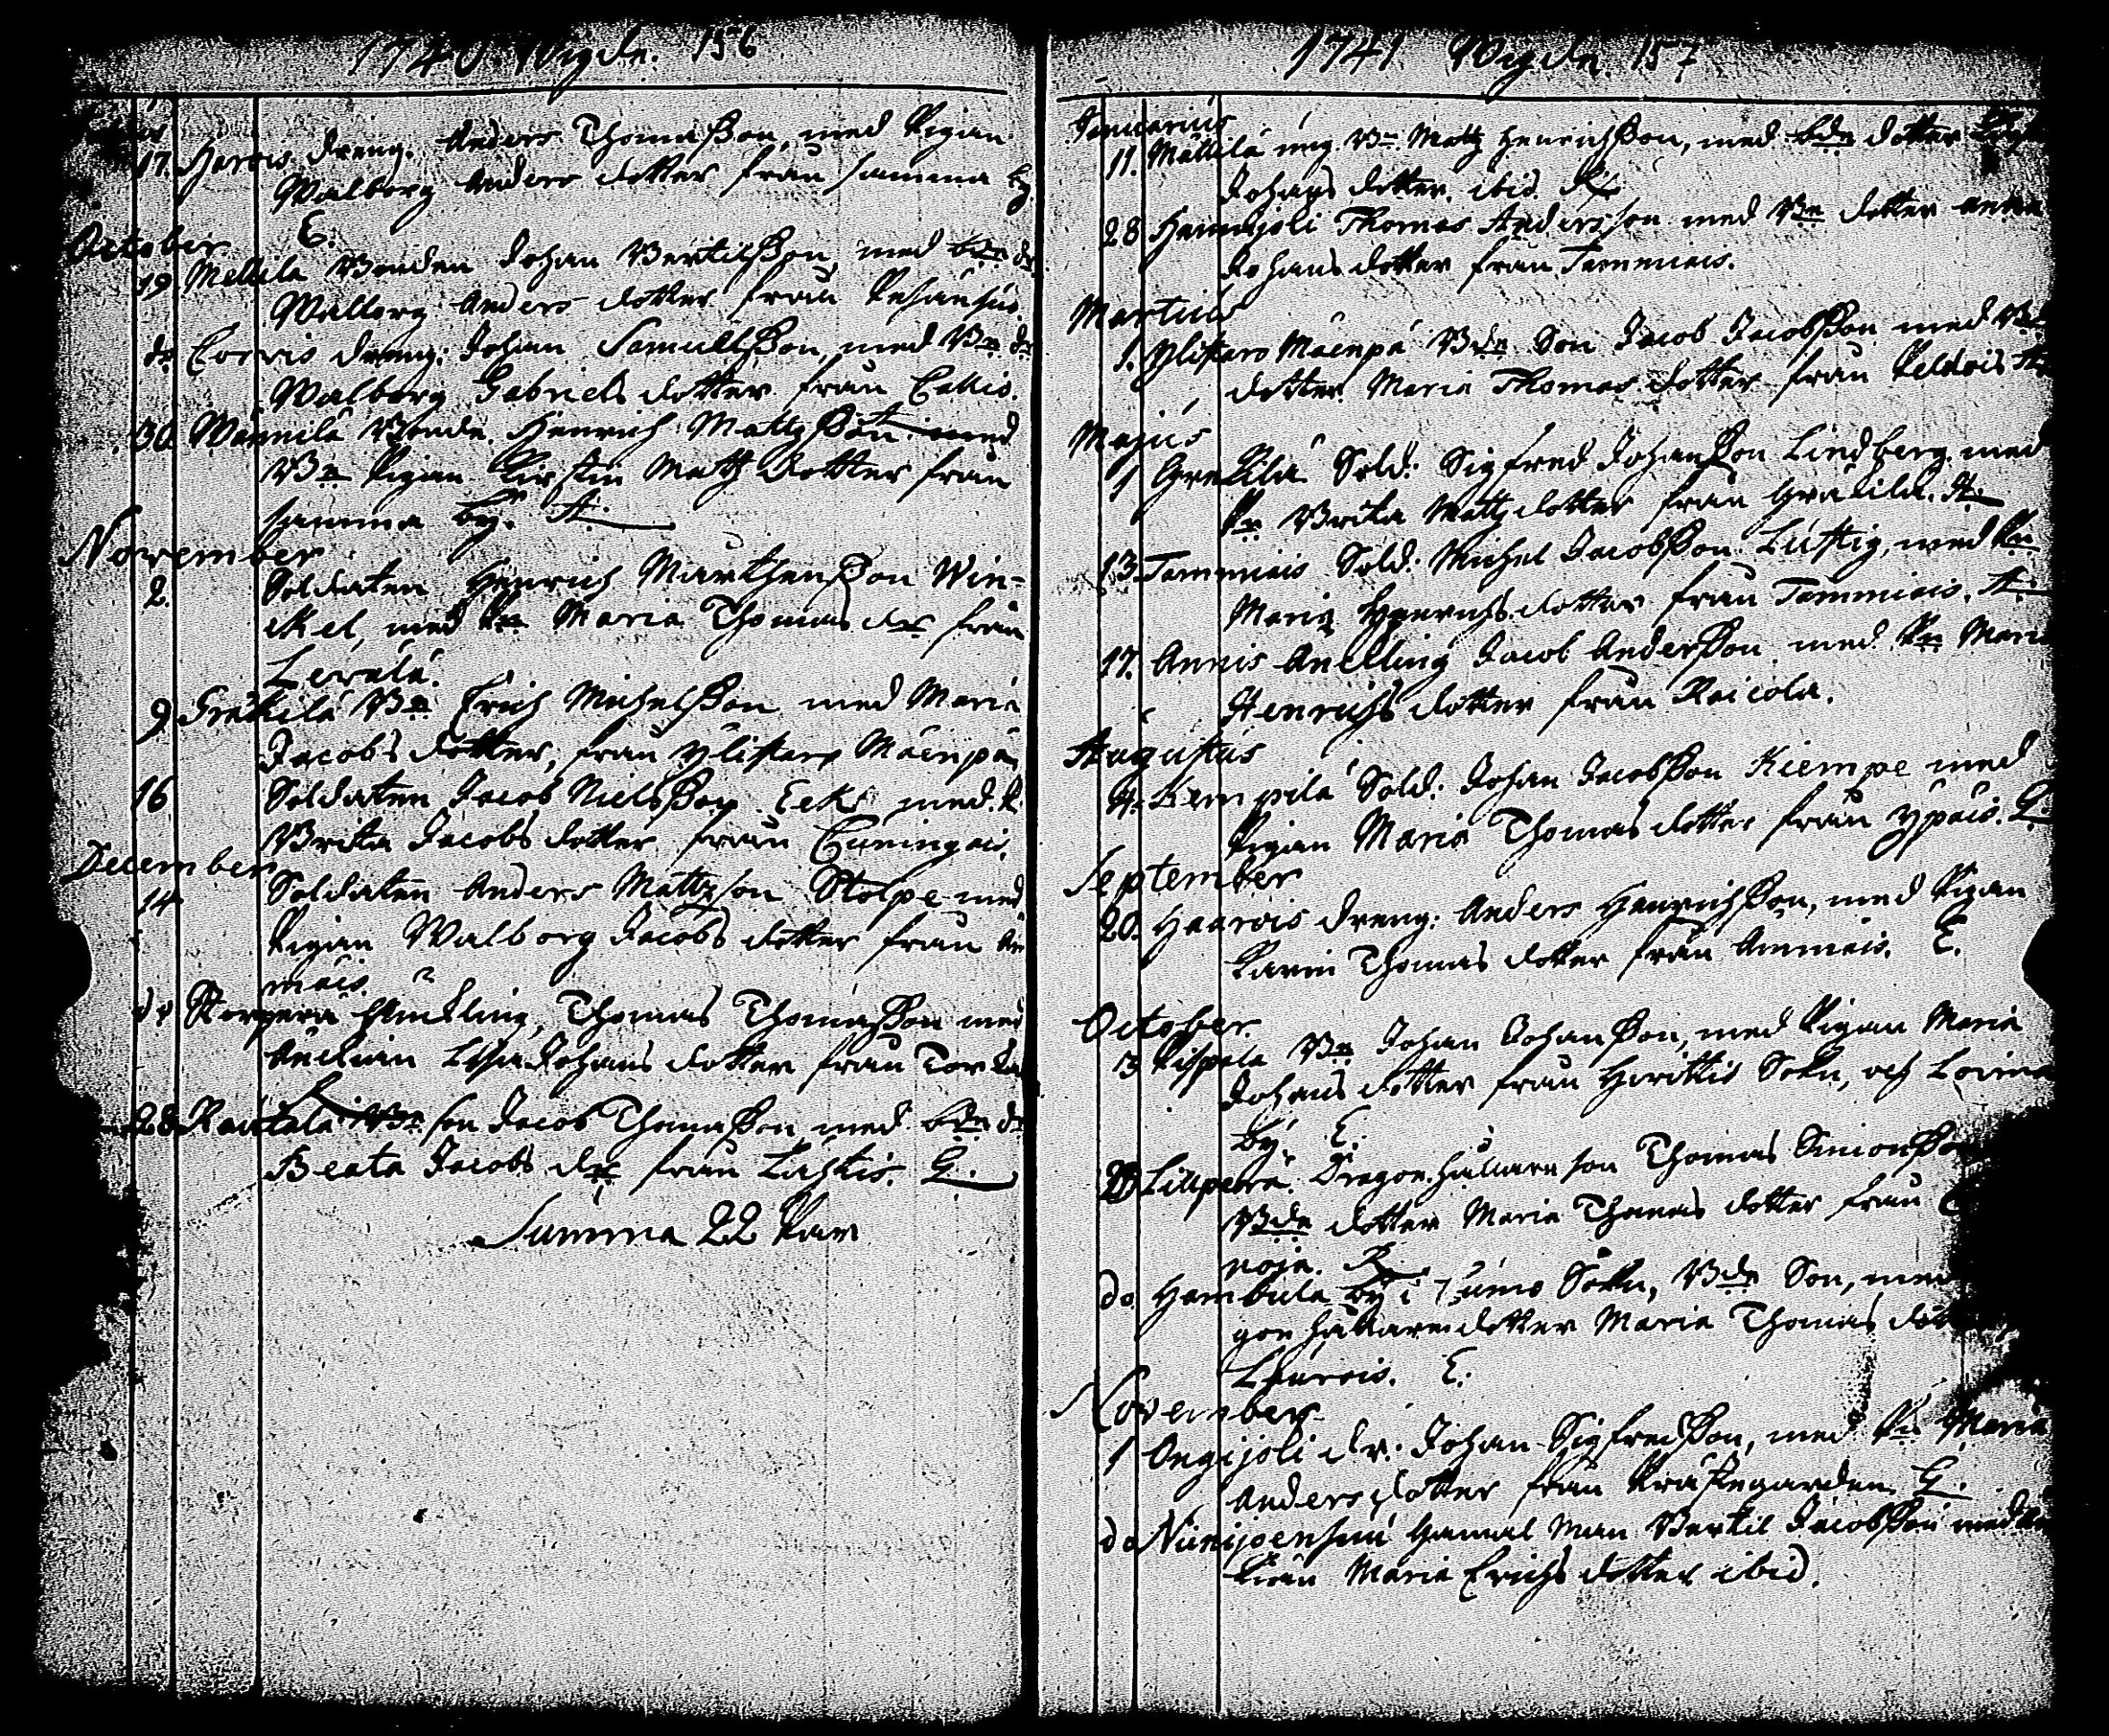 1740 Wigde. 156
17. Harvis dreng. Anders Thomasson, med Pigan
Walborg Anders dotter från samma by
E.
October
19 Mellilä Bonden Johan Bertilsson, med bde dr
Walborg Anders dotter från
do Corvis dreng: Johan Samuelsson, med Bn dr
Walborg Gabriels dotter från Collis.
30 Wännilä Bonde Henrich Mattzson med
Bn Pigan Kirstin Matts dotter från
samma by. A.
November
2. Soldaten Henrich Marthensson Win-
ckel, med Pn Maria Thomas dr från
Levälä.
9 Gräkilä Bn Erich Michelsson med Maria
Jacobs dotter, från Ylistaro Mäenpä
16 Soldaten Jacob Nielsson Eek med P.
Brita Jacobs dotter från Cuningais.
December
14 Soldaten Anders Mattzson Stolpe med
Pigan Walborg Jacobs dotter från Am
mäis.
do Korpera Änckling, Thomas Thomasson med
Änckian Lisa Johans dotter från
28 Rautala Bn son Jacob Thomasson med bde dr
Beata Jacobs dr från Lastis. G.
Summa 22 Par
1741 Wigde. 157
Januarius
11. Mällilä ung Bn Matz Henrichsson, med bde dotter
Johans dotter. ibid. R
28 Hannijoki Thomas Andersson med Bn dotter Anna
Johans dotter från Tammiais.
Martius
1. Ylistaro Mäenpä Bde Son Jacob Jacobsson med Bde
dotter Maria Thomas dotter från Peldois A
Majus
1 Gräkilä Sold: Sigfred Johansson Lindberg med
Pn Brita Mattz dotter från Gräkilä. A.
13. Tammiais Sold: Michel Jacobsson Lustig, med Pn
Maria Henrichs dotter från Tammiais. A.
17. Annis Änckling Jacob Andersson med Pn Maria
Henrichs dotter från Raicola.
Augustus
4. Kempilä Sold: Johan Jacobsson Kiempe med
Pigan Maria Thomas dotter från Ypäis. G.
September
20. Haarvis dreng: Anders Henrichsson, med Pigan
Karin Thomas dotter från Ammäis. E.
October
3 Pispala Bn Johan Johansson, med Pigan Maria
Johans dotter från Hvittis Sokn, och Loima
by. E.
20 Lillperä. Dragon hållare son Thomas Simonsson
Bde dotter Maria Thomas dotter från
noja. R
do Hambula by i Kumo Sokn, Bde Son, med
gon hållare dotter Maria Thomas dotter
Laurois. E.
November
1 Ongijoki dr. Johan Sigfredsson, med Pn Maria
Anders dotter från Prästegården G.
do Niinijoensuu Gammal Man Bertil Jacobsson med
Pigan Maria Erichs dotter ibid.